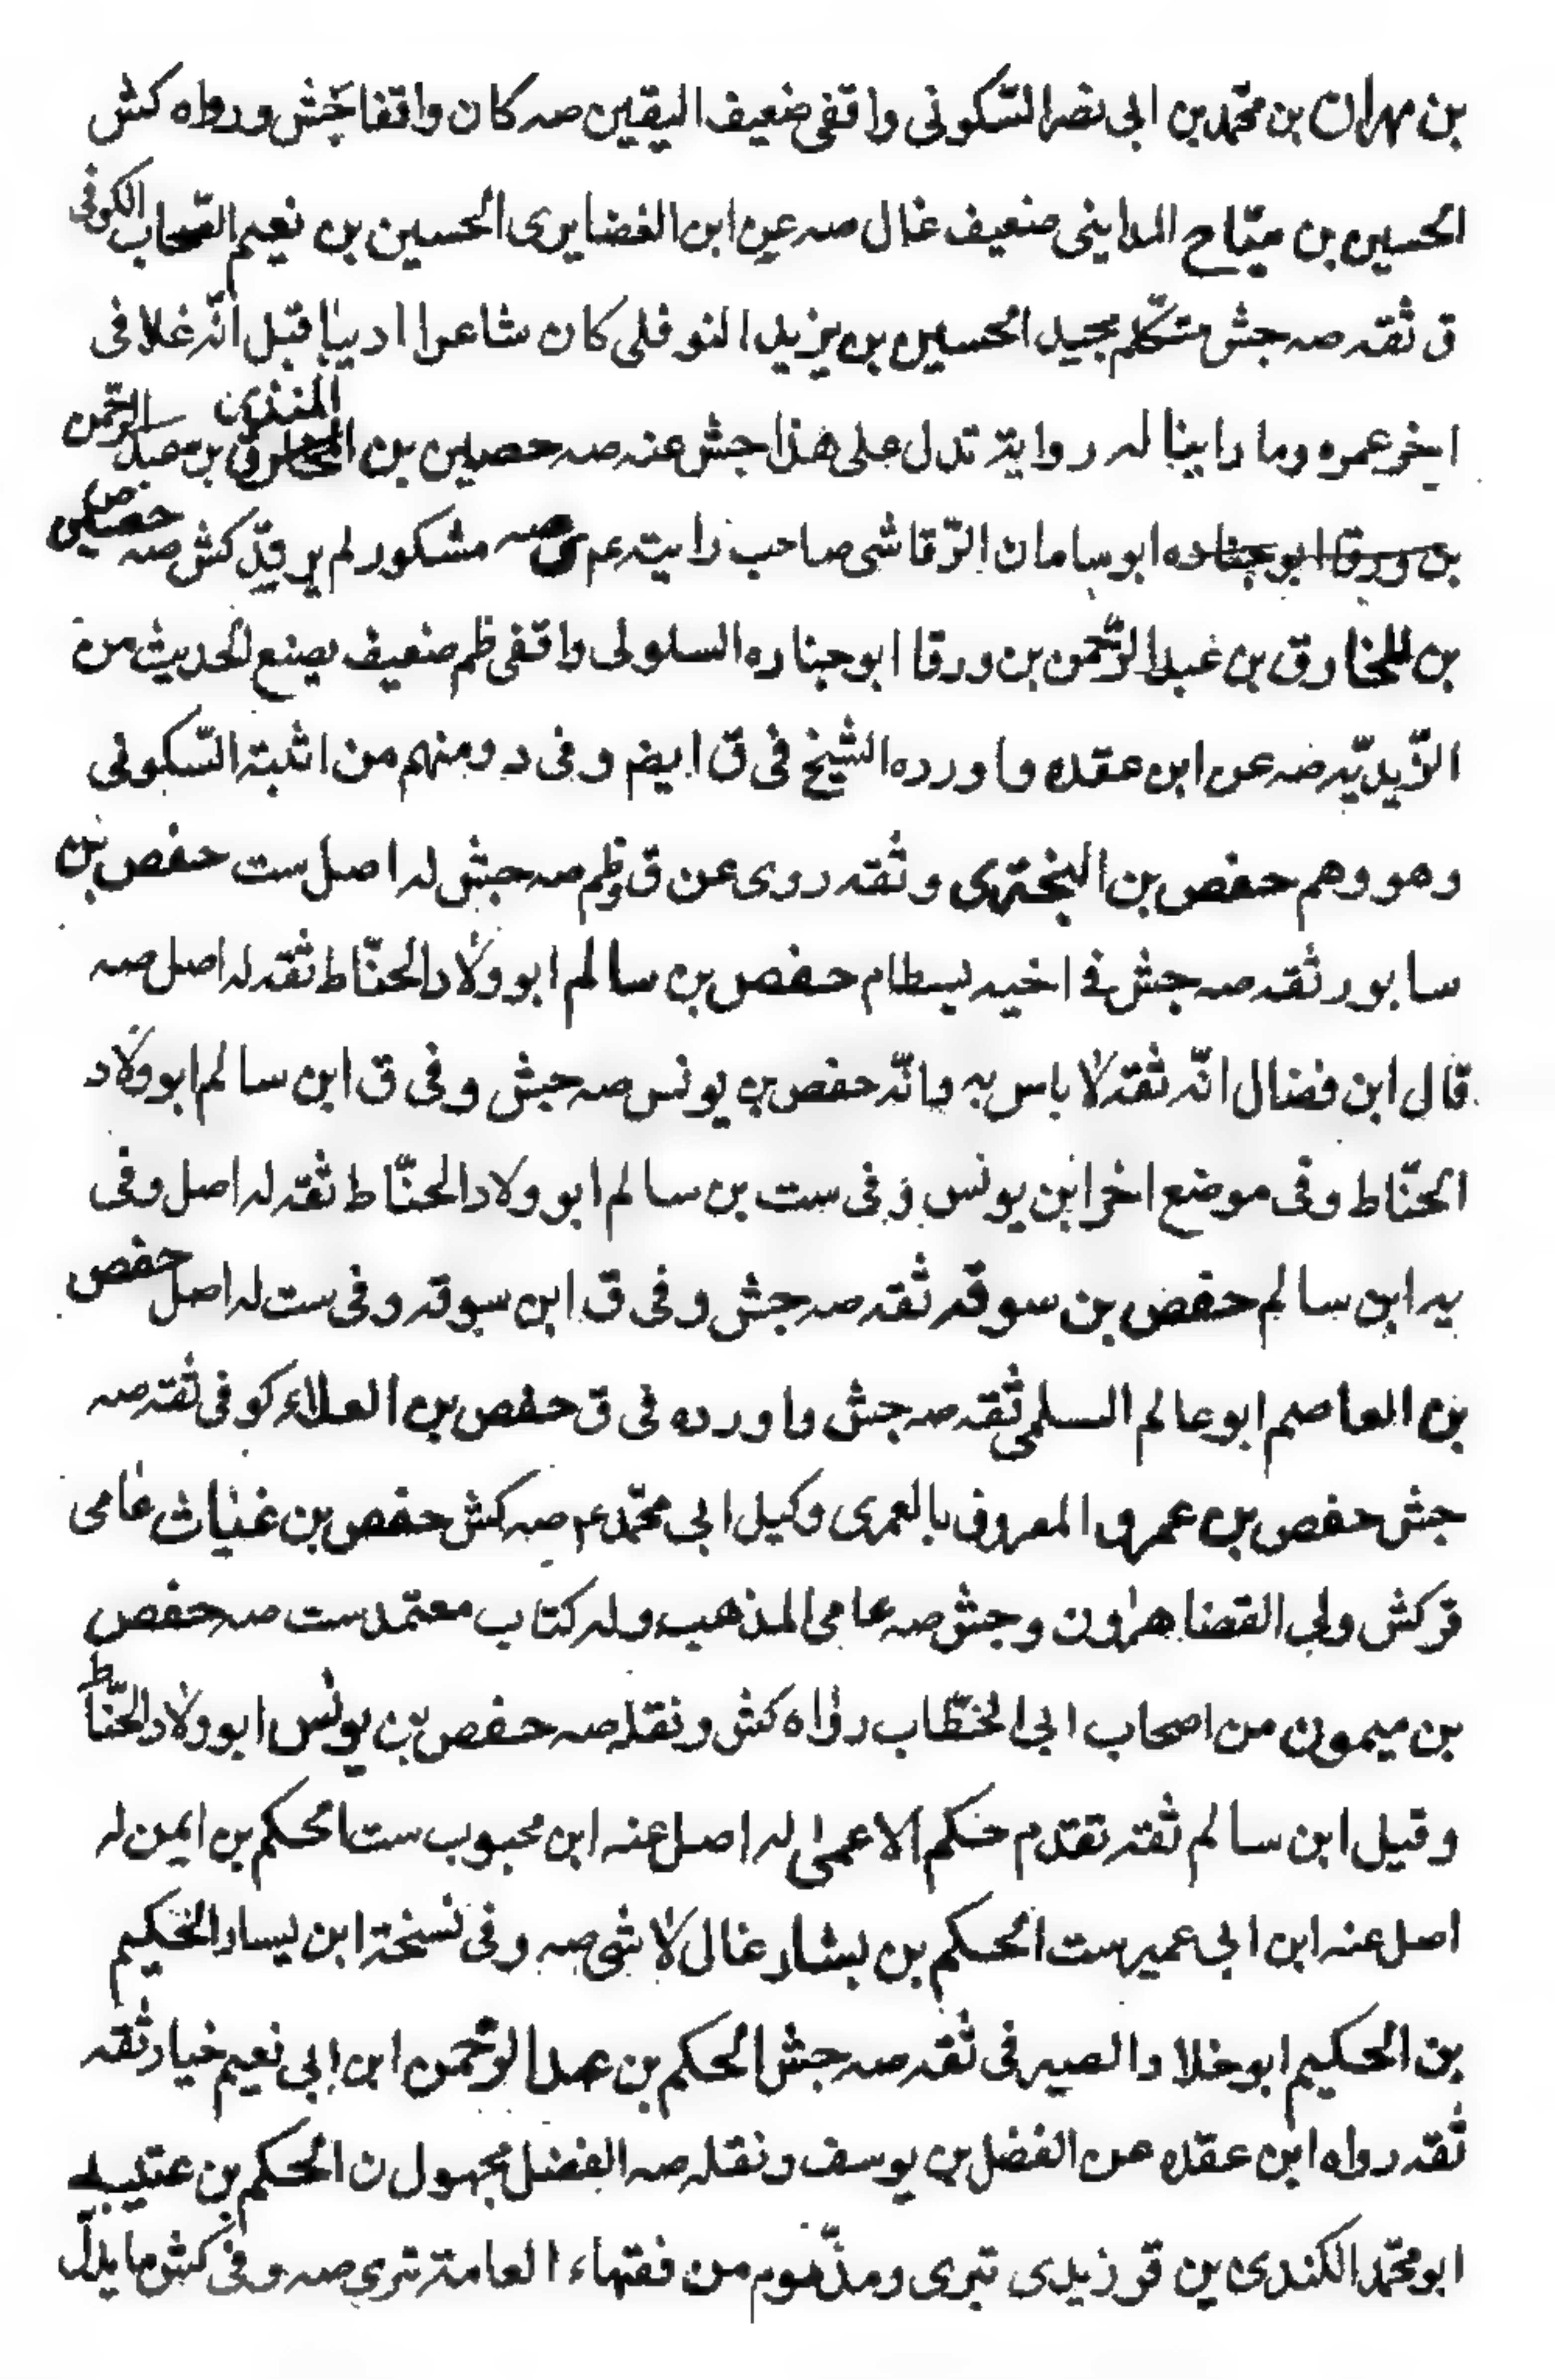 بن مهران بن محمّد بن ابى نصر السّكونى واقفى ضعيف اليقين صه كان واقفا جش ورواه كش
الحسين بن ميّاح المداينى ضعيف غال صه عن ابن الغضايرى الحسين بن نعيم الصّحاب الكوفى
ق ثقه صه جش متكلّم مجيد الحسين بن يزيد النوفلى كان شاعرا اديبا قيل انّه غلا فى
اخر عمره وما راينا له رواية تدل على هذا جش عنه صه حصين بن المنذر بن عبد الرّحمن
ابو سامان الرّقاشى صاحب رايته عم صه مشكور لم يرقدّ كش صه حصين
بن المخارق بن عبد الرّحمن بن ورقا ابو جناده السلولى واقفى ظم ضعيف يصنع الحديث من
الزّيديّه ضه عن ابن عقده واورده الشيخ فى ق ايضم وفى د ومنهم من اثبته السّكونى
وهو وهم حفص بن البخترى وثقه روى عن ق وظم صه جش له اصل ست حفص بن
سابور ثقه صه جش فے اخيه بسطام حفص بن سالم ابو ولاد الحنّاط ثقه له اصل صه
قال ابن فضال انّه ثقة لا باس به وانّه حفص بن يونس صه جش وفى ق ابن سالم ابو ولاد
الحنّاط وفى موضع اخر ابن يونس وفى ست بن سالم ابو ولاد الحنّاط ثقه له اصل وفى
يه ابن سالم حفص بن سوقه ثقه صه جش وفى ق ابن سوقه وفى ست له اصل حفص
بن العاصم ابو عالم السلمى ثقه صه جش واورده فى ق حفص بن العلاء كوفى ثقه صه
جش حفص بن عمرو المعروف بالعمرى وكيل ابى محمّد ع صه كش حفص بن غياث عامى
قر كش ولى القضا هرون وجش صه عامى المذهب وله كتاب معتمد ست صه حفص
بن ميمون من اصحاب ابى الخطّاب رواه كش ونقله صه حفص بن يونس ابو ولاد الحنّاط
وقيل ابن سالم ثقه تقدم حكم الاعمى له اصل عنه ابن محبوب ست الحكم بن ايمن له
اصل عنه ابن ابى عمير ست الحكم بن بشار غال لا شى صه وفى نسخة ابن يسار الحكيم
بن الحكيم ابو خلاد الصيرفى ثقه صه جش الحكم بن عبد الرّحمن ابن ابى نعيم خيار ثقه
ثقه رواه ابن عقده عن الفضل بن يوسف ونقله صه الفضل مجهول ن الحكم بن عتيبه
ابو محمّد الكندى ين قر زيدى تبرى ومذموم من فقهاء العامة تبرى صه وفى كش ما يدلّ